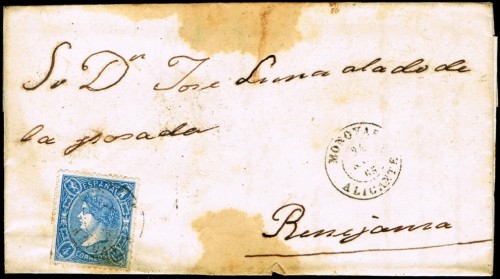 Sr Dn Jose Luna alado de
la posada
MONOVAR
65
ALICANTE
Benejama
ESPAÑA
CORREOS